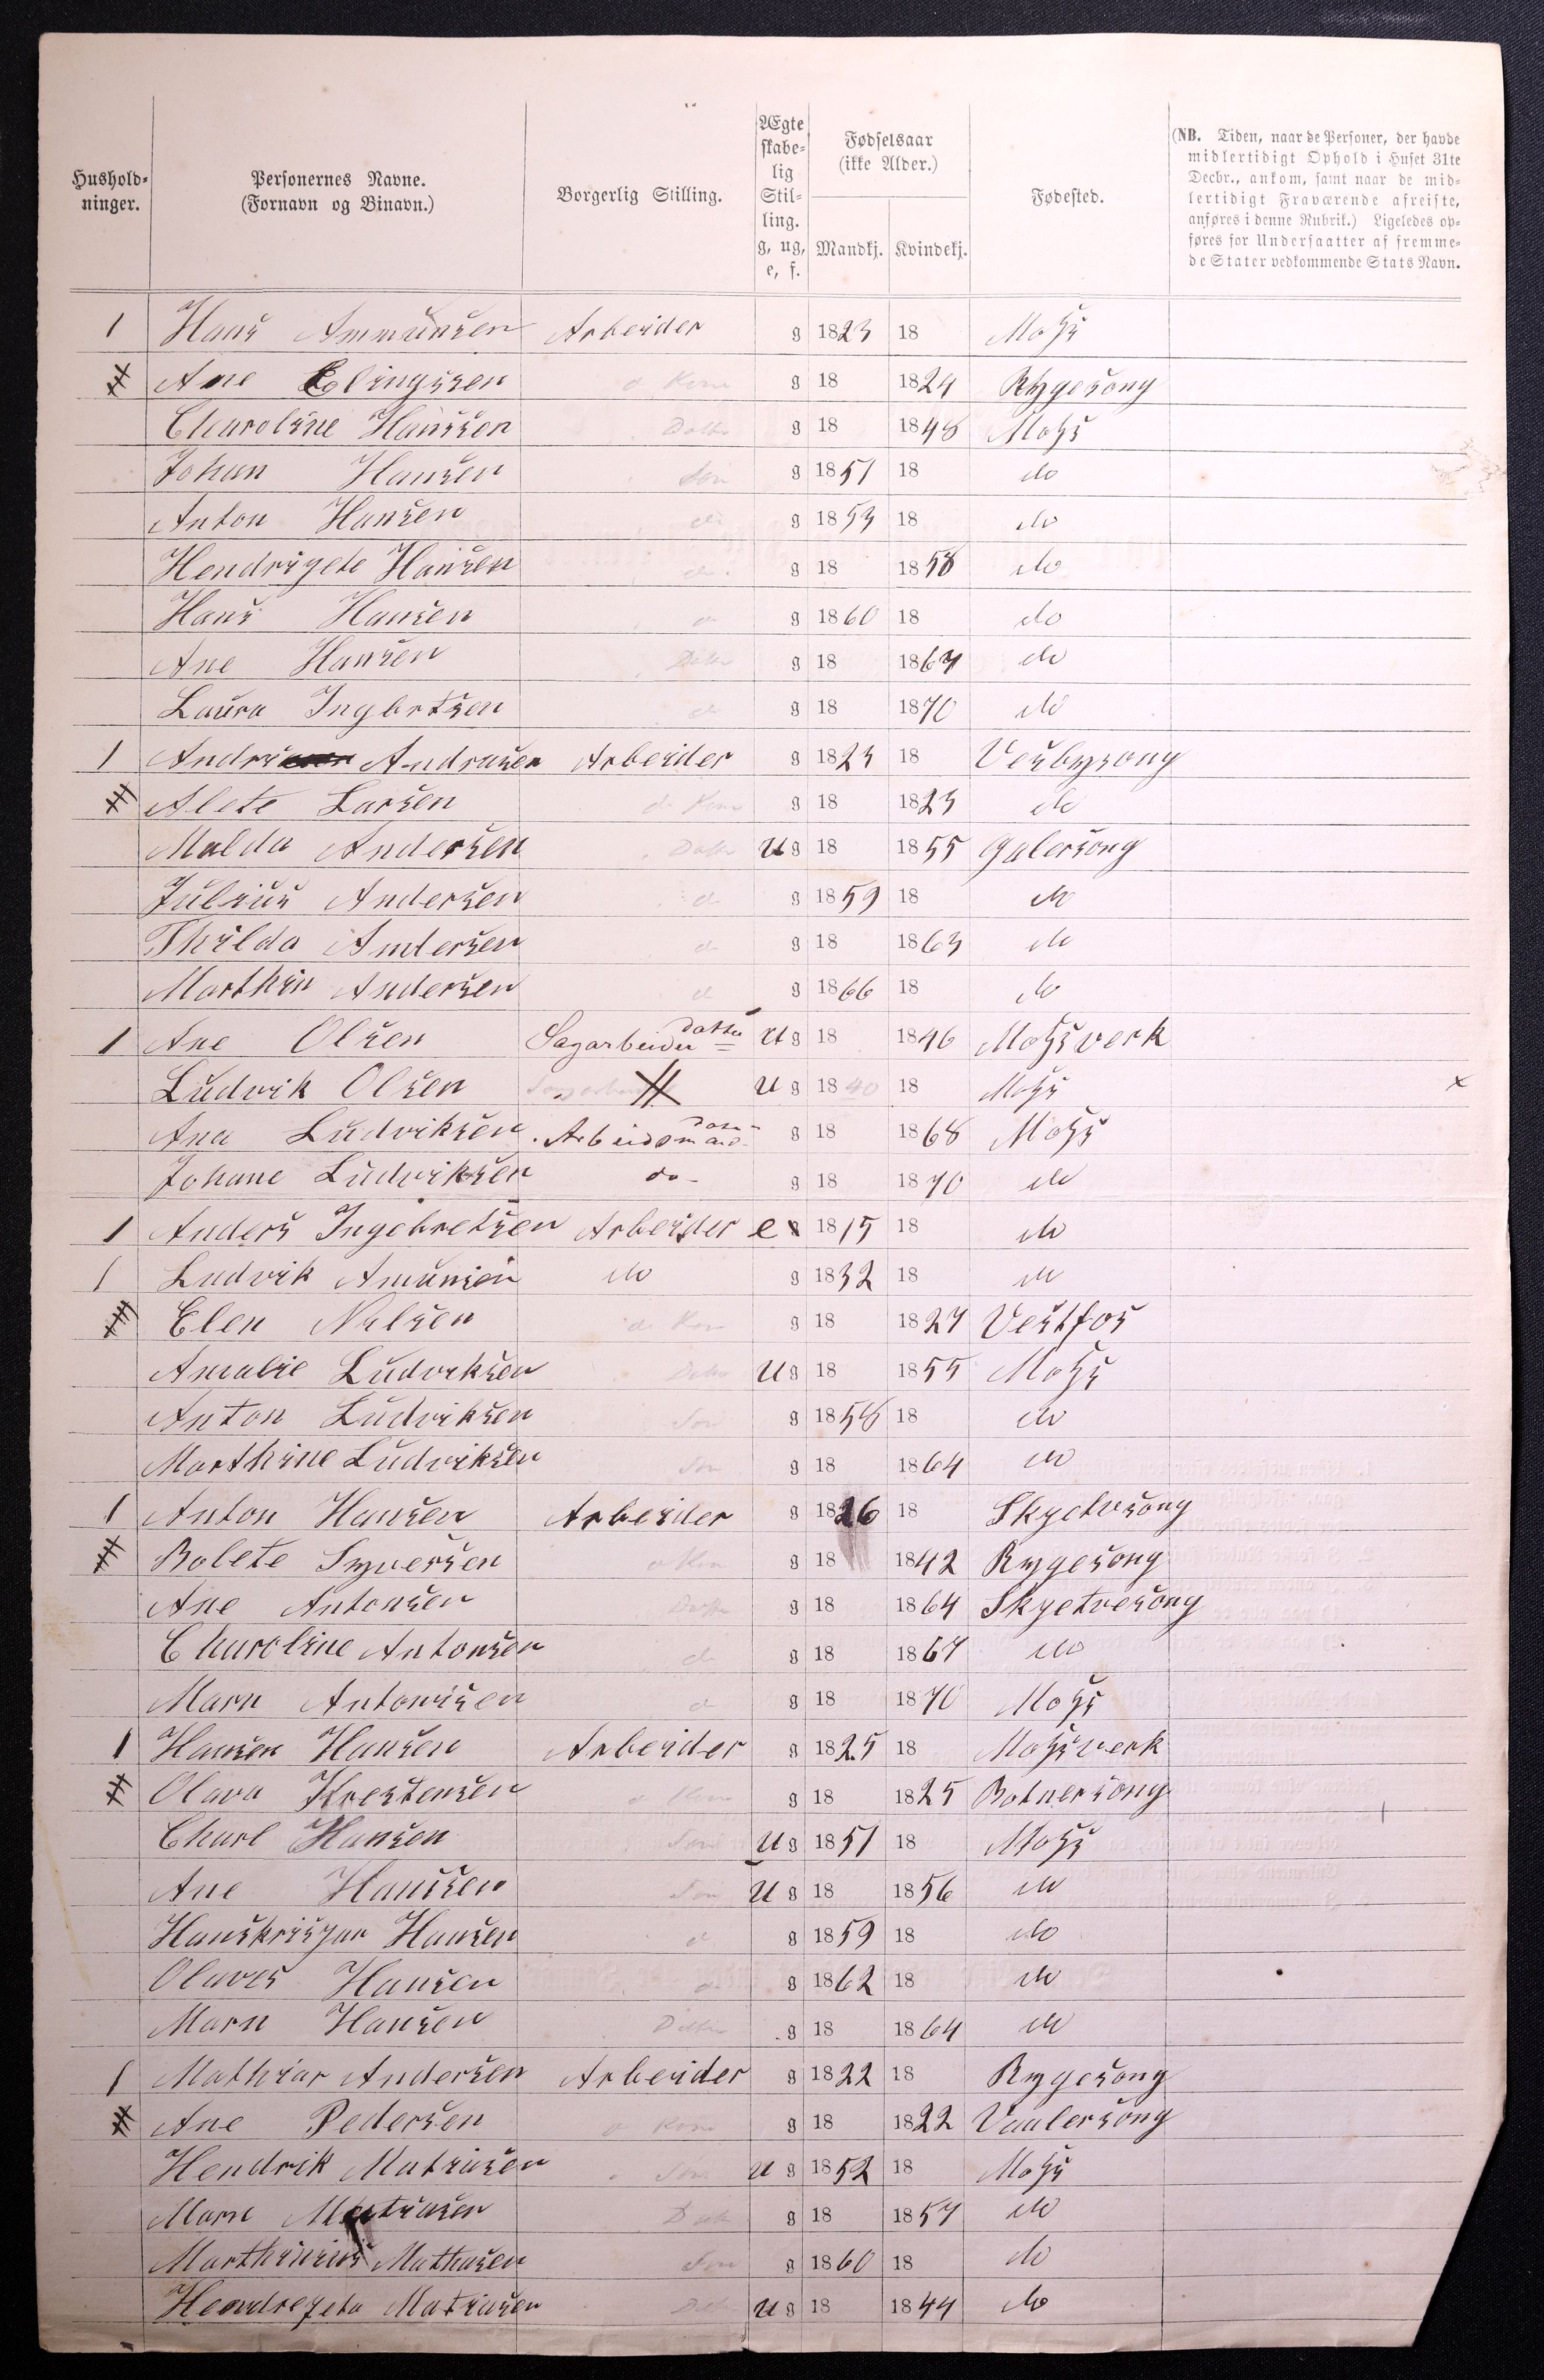 Hushold-ninger. Personernes Navne. (Fornavn og Binavn.) Borgerlig Stilling. Ægte skabe-lig Stil-ling. g, ug, e, f. Fødselsaar (ikke Alder.) Mandkj. Kvindekj. Fødested. (NB. Tiden, naar de Personer, der havde midlertidigt Ophold i Huset 31te Decbr., ankom, samt naar de mid-lertidigt Fraværende afreiste, anføres i denne Rubrik.) Ligeledes op-føres for Undersaatter af fremme-de Stater vedkommende Stats Navn.
1 Hans Ammunsen Arbeider g 1823 18 Moss
Ane Elingssen d Kone g 18 1824 Rygesong
Charoline Hanssen Datter g 18 1848 Moss
Johan Hansen Søn g 1851 18 do
Anton Hansen do g 1853 18 do
Hendrigete Hansen do g 18 1858 do
Hans Hansen do g 1860 18 do
Ane Hansen Datter g 18 1867 do
Laura Ingbrtsen d g 18 1870 do
1 Andri Andrasen Arbeider g 1823 18 Vesbysong
Alete Larsen d Kone g 18 1823 do
Malda Andersen Datter u g 18 1855 Galersong
Julius Andersen d g 1859 18 do
Thilda Andersen d g 18 1863 do
Marthin Andersen d g 1866 18 do
1 Ane Olsen Sagarbeider datter u g 18 1846 Mossverk
Ludvik Olsen u g 1840 18 Moss x
Ana Ludviksen Arbeidsmand g 18 1868 Moss
Johane Ludviksen do g 18 1870 do
1 Anders Ingebretsen Arbeider e g 1815 18 do
1 Ludvik Amunsen do g 1832 18 do
Elen Nilsen d Kone g 18 1827 Vestfos
Amalie Ludviksen Datter u g 18 1855 Moss
Anton Ludviksen Søn g 1858 18 do
Marthine Ludviksen Søn g 18 1864 do
1 Anton Hansen Arbeider g 1826 18 Skyetvsong
Bolete Syversen d Kone g 18 1842 Rygesong
Ane Antonsen Datter g 18 1864 Skyetvesong
Charoline Antonsen d g 18 1867 do
Marn Antonisen d g 18 1870 Moss
1 Hansen Hansen Arbeider g 1825 18 Mossverk
Olava Krestensen d Kone g 18 1825 Botnersong
Charl Hansen Søn u g 1851 18 Moss
Ane Hanssen Søn u g 18 1856 do
Hanskrisjan Hansen d g 1859 18 do
Olaves Hansen d g 1862 18 do
Marn Hansen Datter g 18 1864 do
1 Mathias Andersen Arbeider g 1822 18 Rygesong
Ane Pedersen d Kone g 18 1822 Vaalersong
Hendrik Matiasen Søn u g 1852 18 Moss
Marn Matiasen Datt g 18 1857 do
Marthinius Mathiasen Søn g 1860 18 do
Hendregeta Matiasen Datter u g 18 1844 do